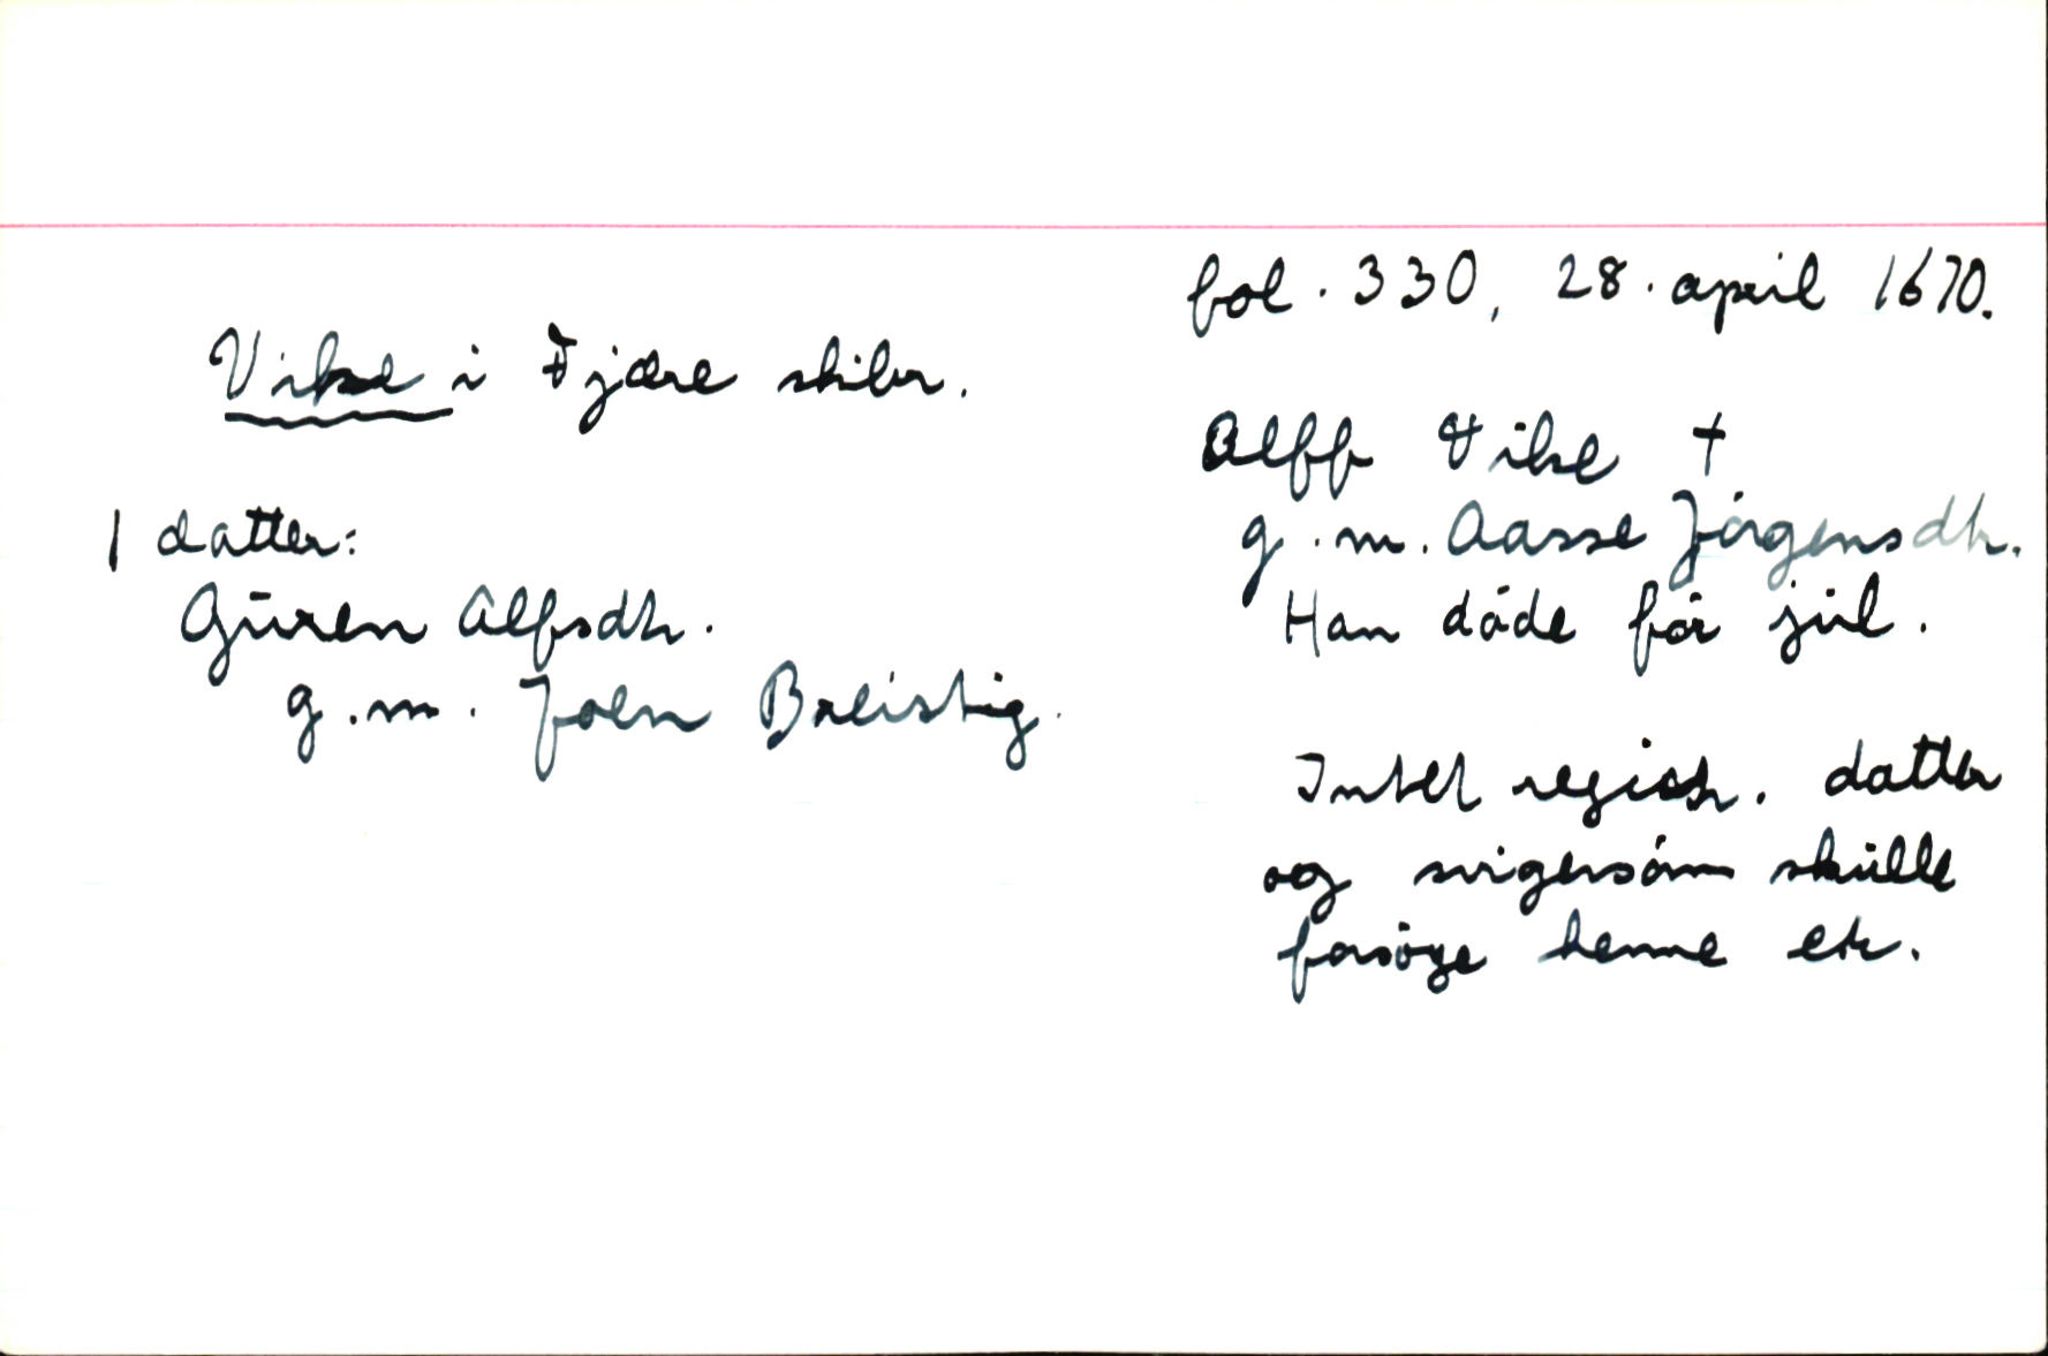 fol. 330, 28. april 1670.
Vike i Fjære skibr.
Alff Vike †
g.m. Aasse Jörgensdtr.
Han döde för jul.
1 datter:
Guren Alfsdtr.
g.m. Joen Breistig.
Intet registr. datter
og svigersön skulle
forsörge henne etc.